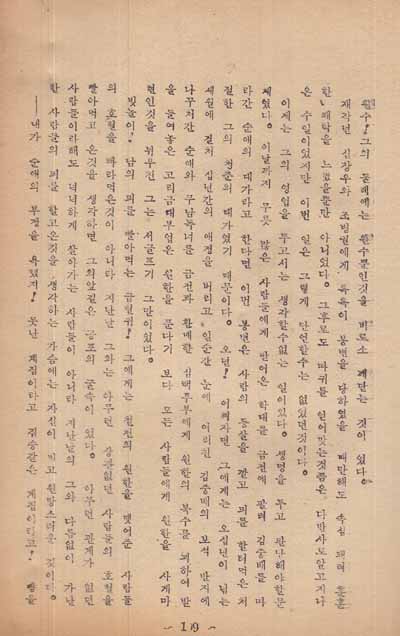 원수! 그의 둘레에는 원수뿐인것을 비로소 깨닫는 것이 있다.
재작년 김장우와 조빌렬에게 톡톡이 봉변을 당하였을 때만해도 속심 패며 훈훈
한 쾌락을 느꼈을뿐만 아니었다. 그후로도 따귀를 얻어맞는것쯤은 다반사로알고지나
은 수일이었지만 이번 일은 그렇게 단언할수는 없었던것이다.
이제는 그의 영업을 두고서는 생각할수없는 일이었다. 생명을 두고 판단해야할문
제였다. 이날까지 무릇 많은 사람들에게 받어온 학대를 금전에 팔려 김중배를 따
라간 순애의 대가라고 한다면 이번 봉변은 사람의 등살을 깎고 피를 할터먹은 처
절한 그의 청춘의 대가였기 때문이다. 오년! 어쩌자면 그에게는 오십년이 넘는
세월에 걸쳐 십년간의 애정을 버리고 일순간 눈에 어리친 김중배의 보석 반지에
나꾸처간 순애와 무남독녀를 금전과 환매한 심택부부에게 원한의 복수를 꾀하여 발
을 들여놓은 고리금대부업은 원한을 푼다기 보다 모든 사람들에게 원한을 사게마
련인것을 뉘우친 그는 서글프기 그만이었다.
빚놀이! 남의 피를 빨아먹는 금벌귀! 그에게는 철천의 원한을 맺어준 사람들
의 호혈을 빠라먹은것이 아니라 지난날 그와는 아무런 상관없던 사람들의 호혈을
빨아먹고 온것을 생각하면 그의앞길은 공포의 굴속이 있다. 아무런 관계가 없던
사람들이라해도 넉넉하게 살아가는 사람들이 아니라 지난날의 그와 다름없이 가난
한 사람들의 피를 할고온것을 생각하는 가슴에는 자신이 밉고 원망스러운 것이다.
──내가 순애의 부정을 욕했지! 못난 계집이라고 짐승같은 계집이라고! 빵을
- 19 -